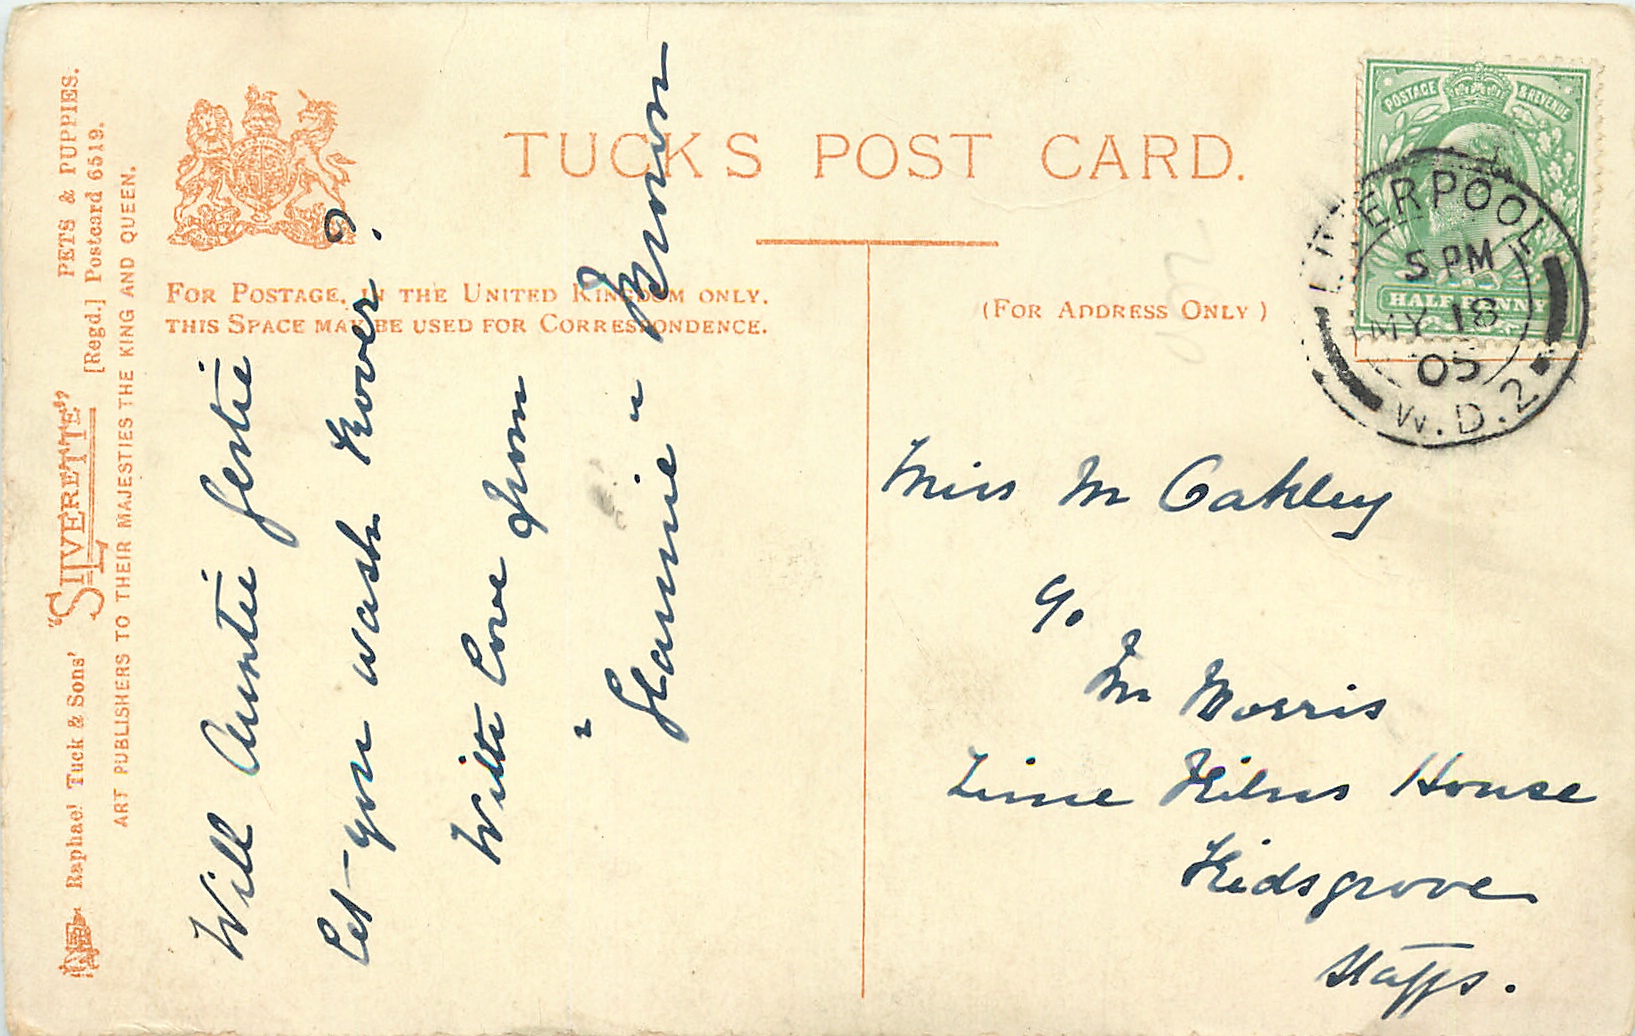 TUCK'S POST CARD.
FOR POSTAGE, IN THE UNITED KINGDOM ONLY,
THIS SPACE MAY BE USED FOR CORRESPONDENCE.
(FOR ADDRESS ONLY)
POSTAGE & REVENUE
HALFPENNY
LIVERPOOL
5 PM
MY 18
05
W.D.2
Raphael Tuck & Sons' "SILVERETTE" PETS & PUPPIES.
[Regd.] Postcard 6519.
ART PUBLISHERS TO THEIR MAJESTIES THE KING AND QUEEN.
Will Auntie Gertie
let you wash Rover?
With love from
" "
Brown
Miss M Oakley
c/o
Mr Morris
Lime Kilns House
Kidsgrove
Staffs.